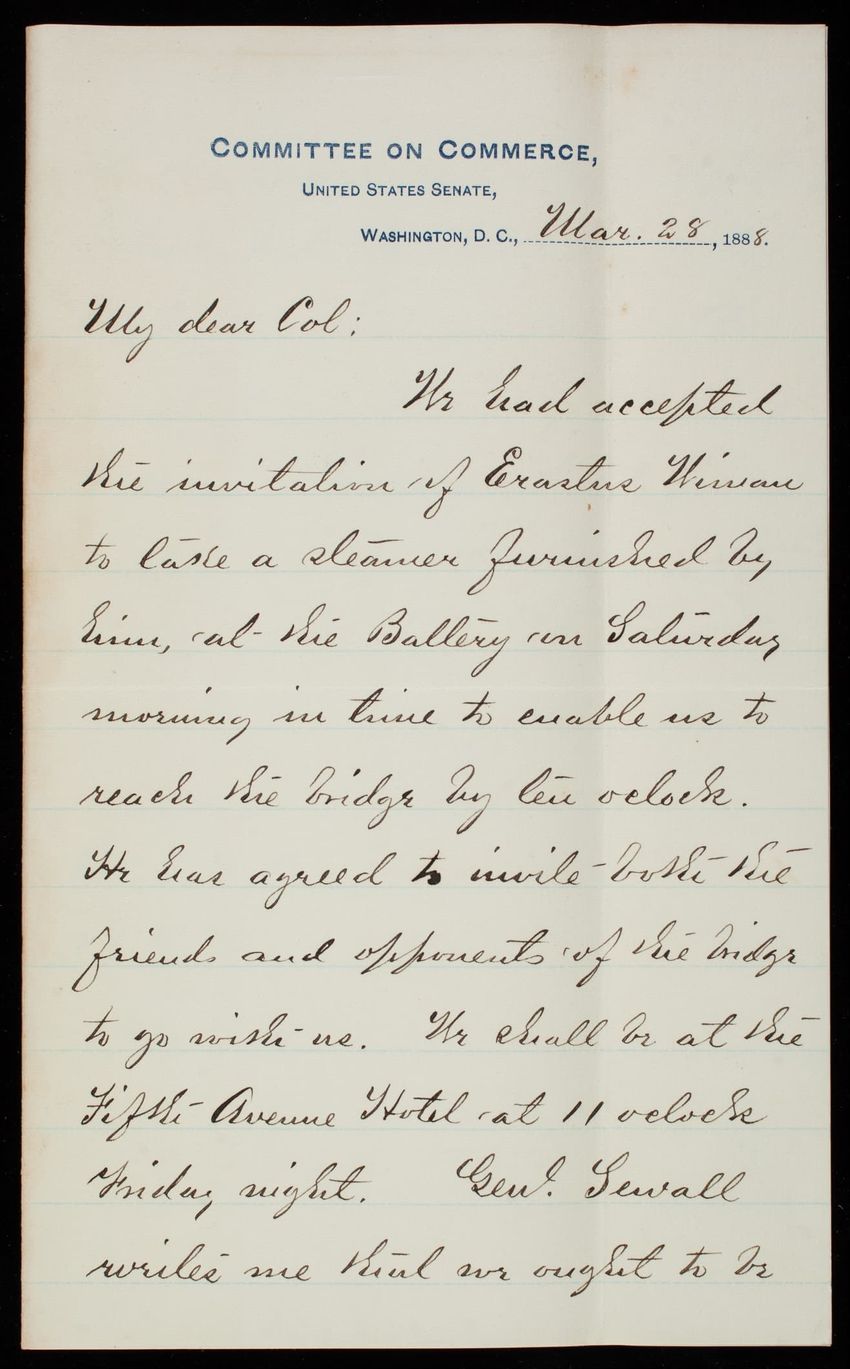 COMMITTEE ON COMMERCE,
UNITED STATES SENATE,
WASHINGTON, D. C., Mar. 28, 1888.
My dear Col:
We had accepted
the invitation of Erastus Wiman
to take a steamer furnished by
him, at the Battery on Saturday
morning in time to enable us to
reach the bridge by ten oclock.
He has agreed to invite both the
friends and opponents of the bridge
to go with us. We shall be at the
Fifth Avenue Hotel at 11 oclock
Friday night. Genl. Sewall
writes me that we ought to be